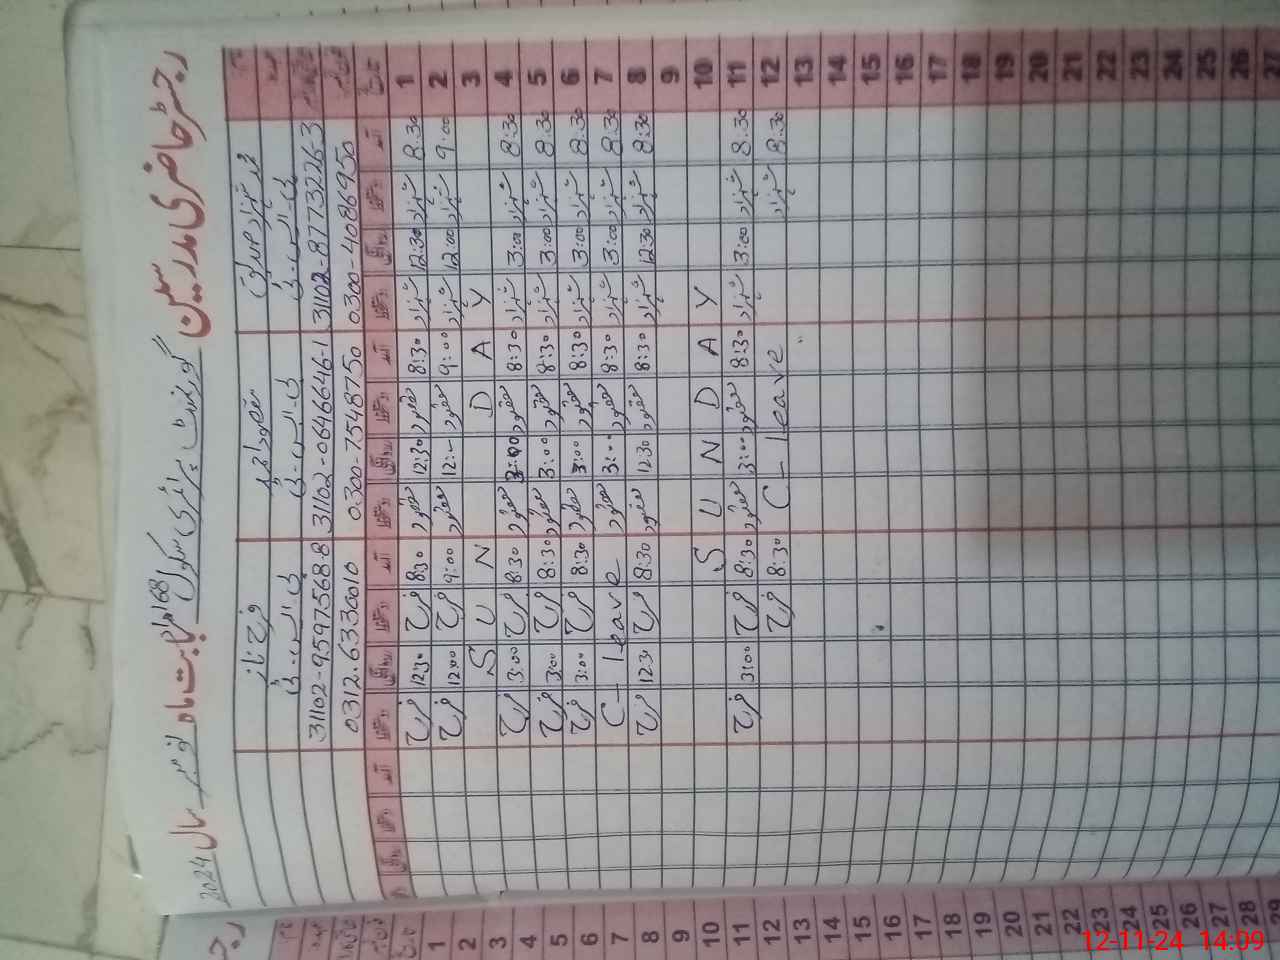 رجسٹر حاضری مدرسین گورنمنٹ پرائمری سکول 168 بابت ماہ نومبر سال 2024
نام محمد شہزاد فرح ناز
عہدہ پی۔ایس۔ٹی پی۔ایس۔ٹی پی۔ایس۔ٹی
31102-8773226-3 31102-0646646-1 31102-9597568-8
0300-4086950 0300-7548750 0312-6330010
تاریخ آمد دستخط روانگی دستخط آمد دستخط روانگی دستخط آمد دستخط روانگی دستخط آمد دستخط روانگی
1 8:30 شہزاد 12:30 شہزاد 8:30 12:30 8:30 فرح 12:30 فرح
2 9:00 شہزاد 12:00 شہزاد 9:00 12:00 9:00 فرح 12:00 فرح
3 S U N D A Y
4 8:30 شہزاد 3:00 شہزاد 8:30 3:00 8:30 فرح 3:00 فرح
5 8:30 شہزاد 3:00 شہزاد 8:30 3:00 8:30 فرح 3:00 فرح
6 8:30 شہزاد 3:00 شہزاد 8:30 3:00 8:30 فرح 3:00 فرح
7 8:30 شہزاد 3:00 شہزاد 8:30 3:00 C-leave
8 8:30 شہزاد 12:30 شہزاد 8:30 12:30 8:30 فرح 12:30 فرح
9
10 S U N D A Y
11 8:30 شہزاد 3:00 شہزاد 8:30 3:00 8:30 فرح 3:00 فرح
12 8:30 شہزاد C-leave 8:30 فرح
13
14
15
16
17
18
19
20
21
22
23
24
25
26
27
1
2
3
4
5
6
7
8
9
10
11
12
13
14
15
16
17
18
19
20
21
22
23
24
25
26
27
28
29
12-11-24 14:09